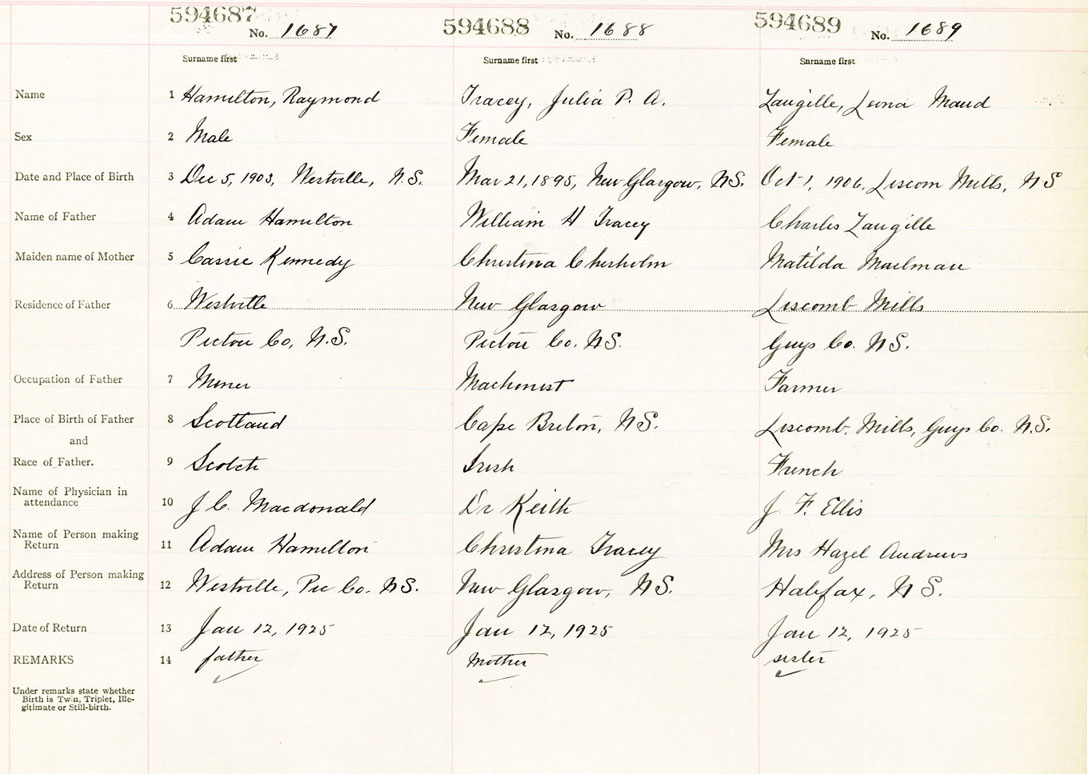 594687 594688 594689
No. 1687 No. 1688 No. 1689
Surname first Surname first Surname first
Name 1 Hamilton, Raymond Tracey, Julia P. A. Langille, Leona Maud
Sex 2 Male Female Female
Date and Place of Birth 3 Dec 5, 1903, Westville, N.S. Mar 21, 1895, New Glasgow, NS. Oct 1, 1906, Liscom Mills, NS
Name of Father 4 Adam Hamilton William H Tracey Charles Langille
Maiden name of Mother 5 Cassie Kennedy Christina Chisholm Matilda Mailman
Residence of Father 6 Westville New Glasgow Liscomb Mills
Pictou Co, N.S. Pictou Co. NS. Guys Co. NS.
Occupation of Father 7 Miner Machonist Farmer
Place of Birth of Father 8 Scotland Cape Breton, NS. Liscomb. Mills, Guys Co. N.S.
and
Race of Father. 9 Scotch Irish French
Name of Physician in
attendance 10 J C. Macdonald Dr Keith J F. Ellis
Name of Person making
Return 11 Adam Hamilton Christina Tracey Mrs Hazel Andrews
Address of Person making
Return 12 Westville, Pic Co. NS. New Glasgow, NS. Halifax, NS.
Date of Return 13 Jan 12, 1925 Jan 12, 1925 Jan 12, 1925
REMARKS 14 father mother sister
Under remarks state whether
Birth is Twin, Triplet, Ille-
gitimate or Still-birth.